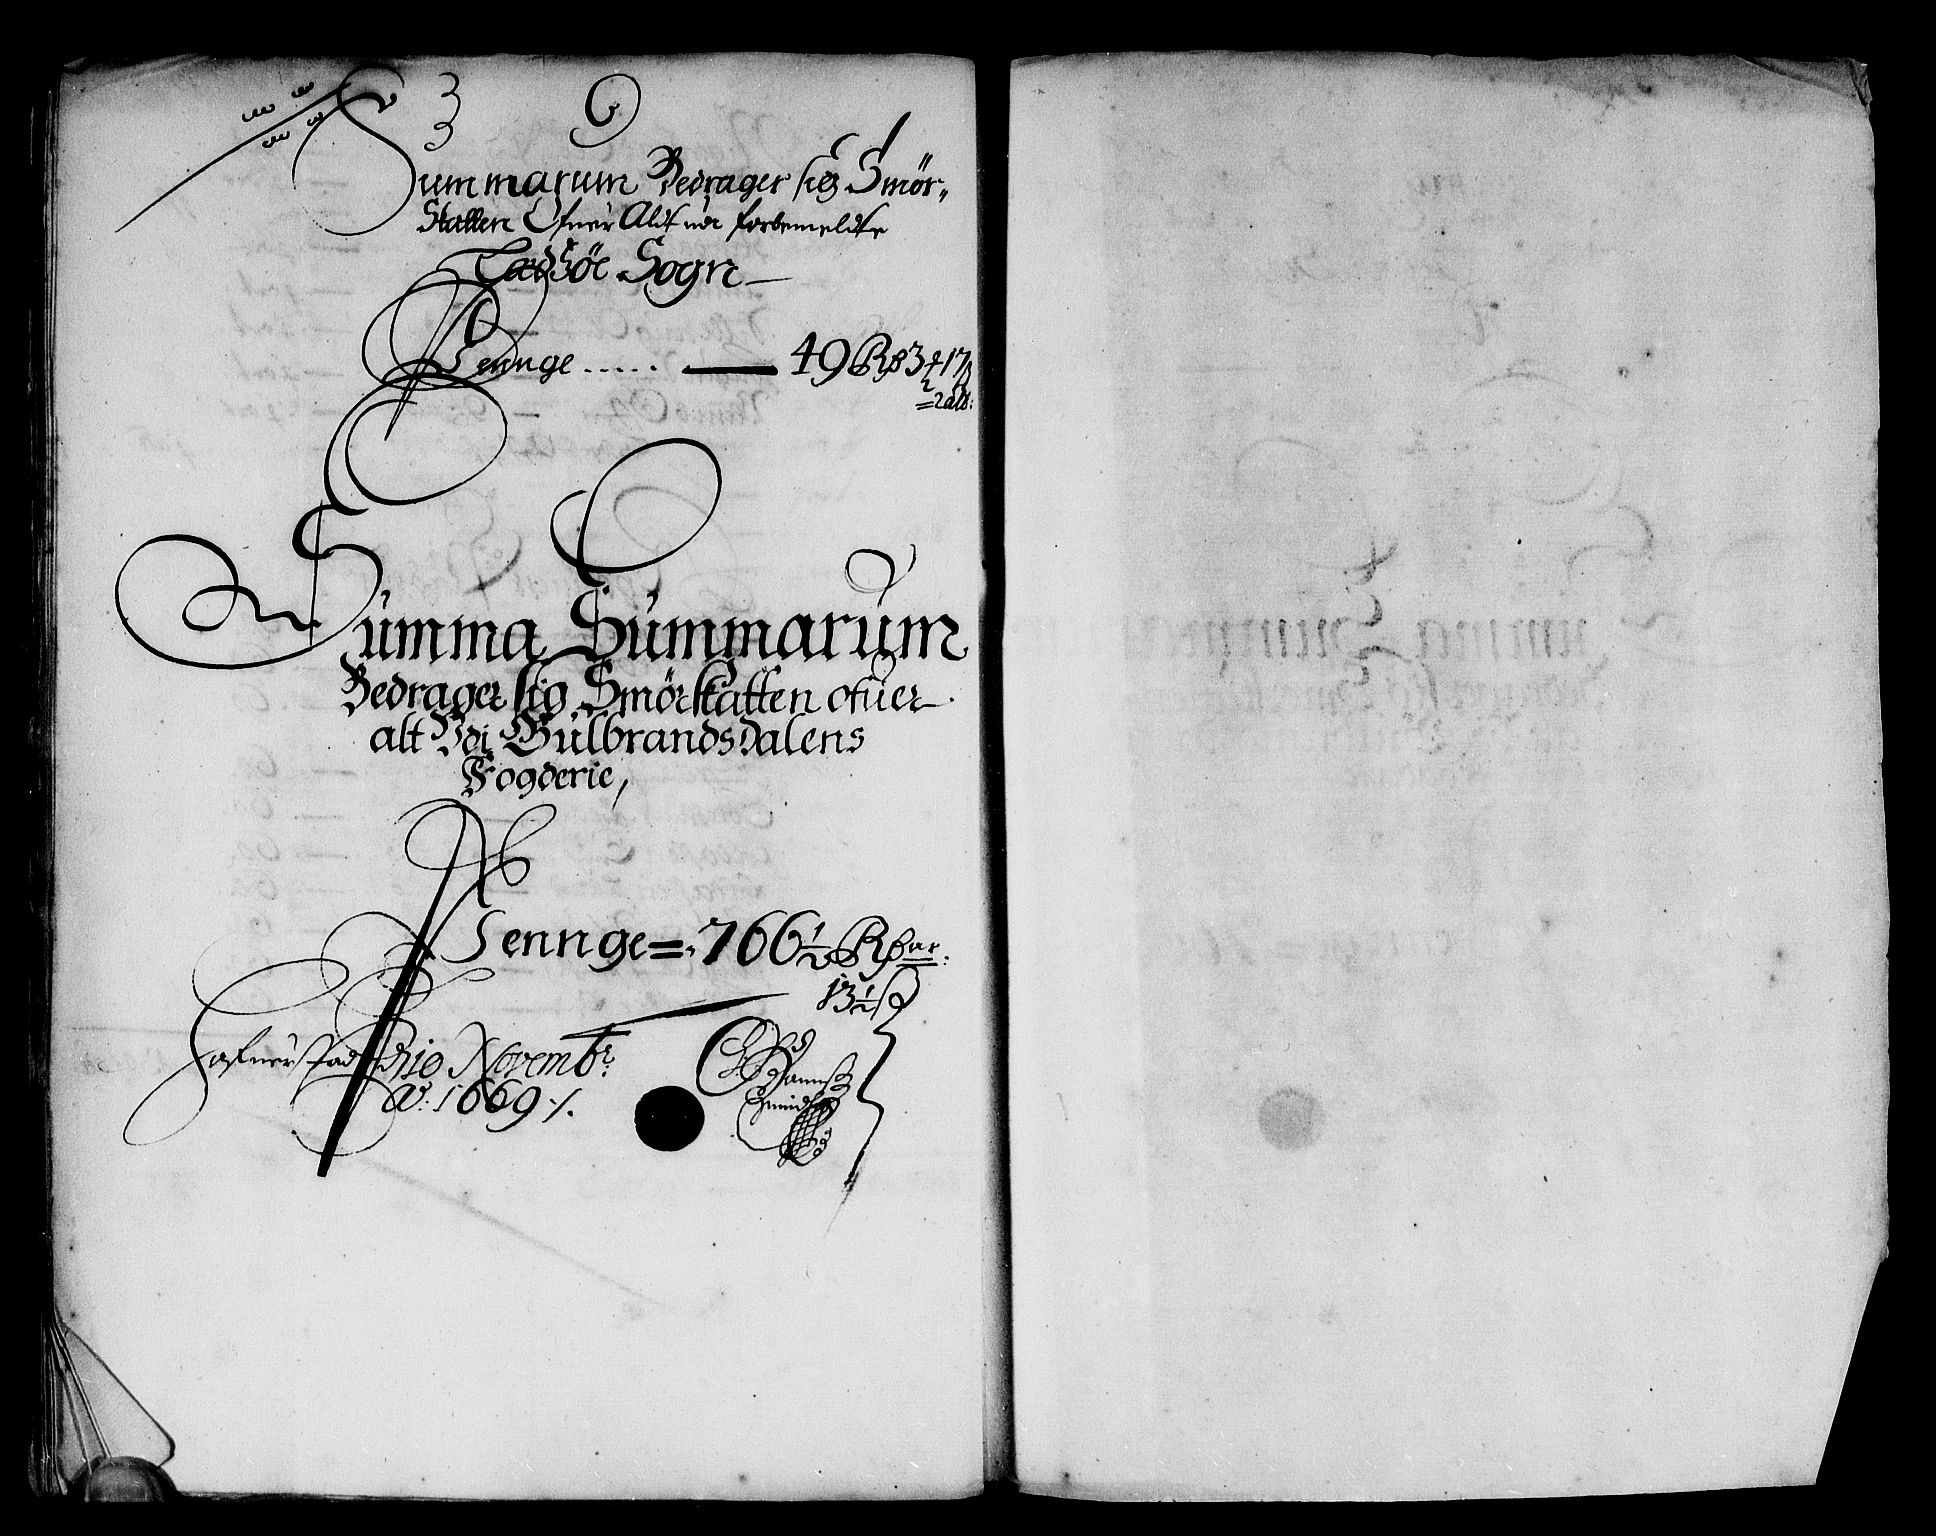 Summarum Bedrager sig Smör-
Skatten Ofuer Alt udi forbemelte
Sogn
Pennge ..... — 49 Rß 3
= 2 alb:
Summa Summarum
Bedrager sig Smörskatten ofuer
alt Vdi Gulbrandsdalens
Fogderie,
Pennge =. 766½ Rßar:
13½ ß
Hafuerstad d 10 Novembr:
Ao: 1669 ./.